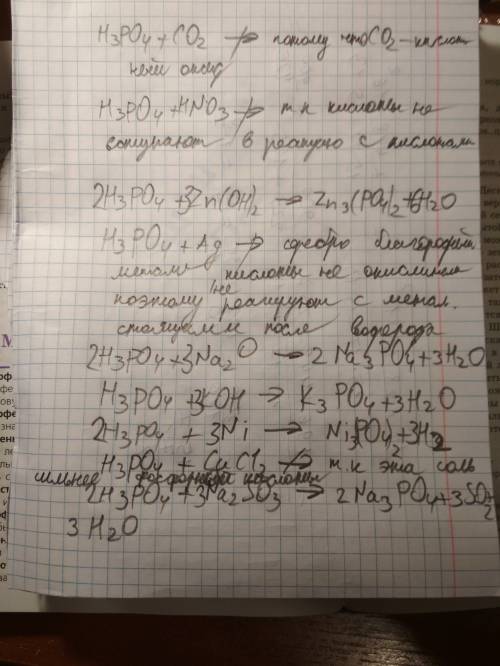 H3PO4 + CO2 ↛ потому что CO2 - кислот
ный оксид
H3PO4 + HNO3 ↛ т.к кислоты не
вступают в реакцию с кислотами
2H3PO4 + 3Zn(OH)2 → Zn3(PO4)2 + 6H2O
H3PO4 + Ag ↛ серебро благородный
металл кислоты не окислители
поэтому не реагируют с метал.
стоящем после водорода
2H3PO4 + 3Na2O → 2Na3PO4 + 3H2O
H3PO4 + 3KOH → K3PO4 + 3H2O
2H3PO4 + 3Ni → Ni3(PO4)2 + 3H2
H3PO4 + CuCl2 ↛ т.к эта соль
сильнее фосфорной кислоты
2H3PO4 + 3Na2SO3 → 2Na3PO4 + 3SO2 +
3H2O